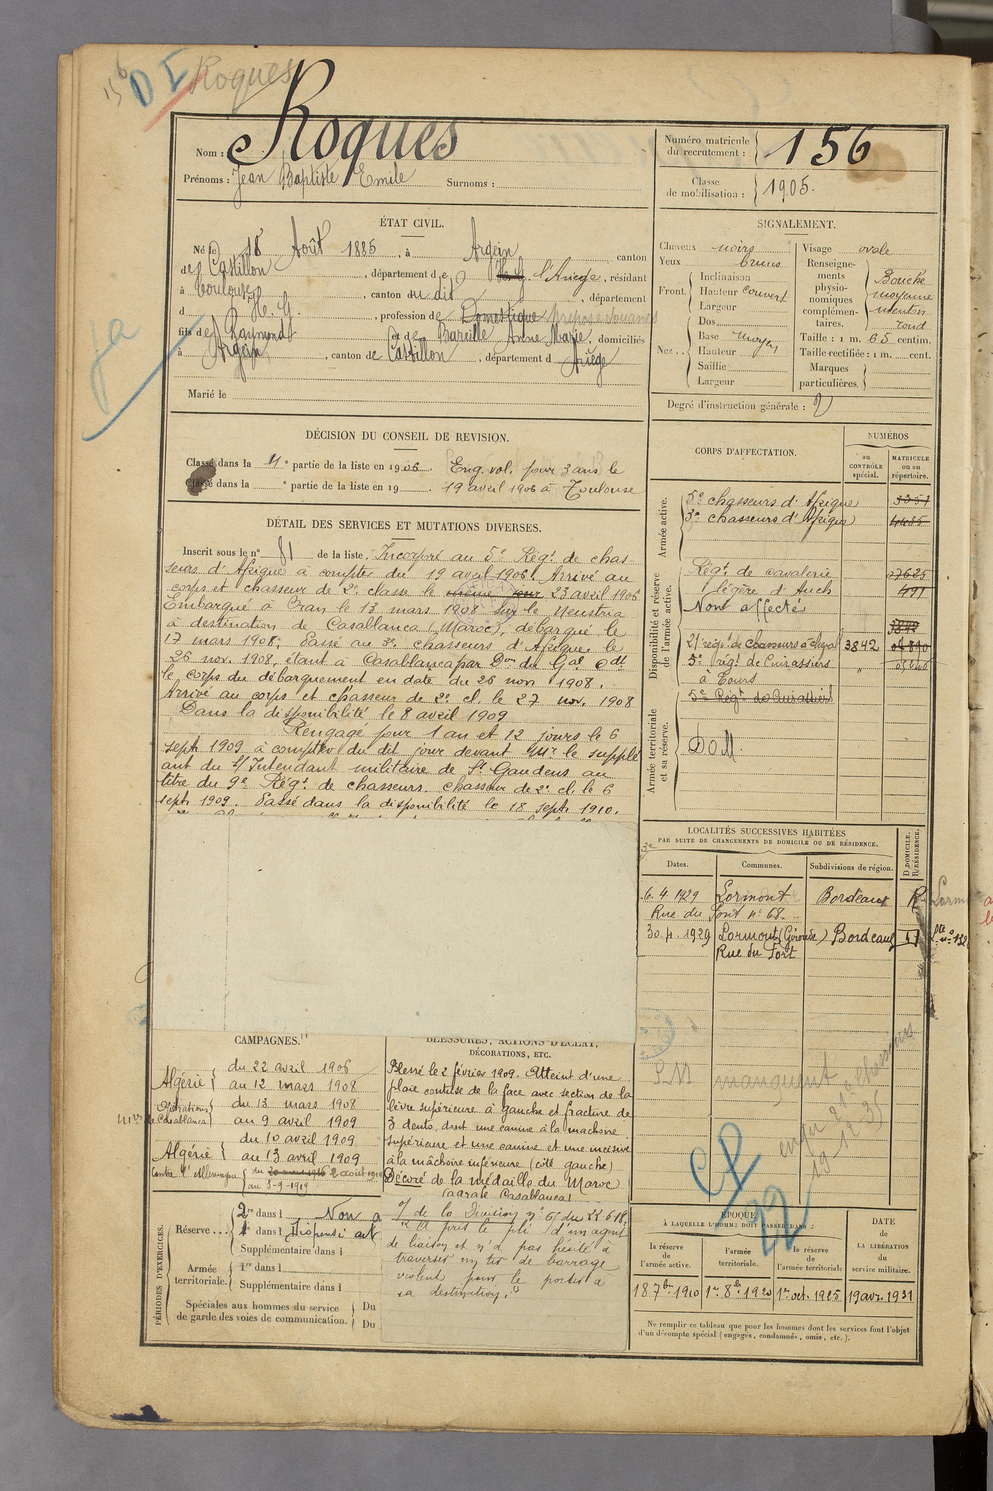 156 D I Roques
Nom : Roques
Prénoms : Jean Baptiste Emile Surnoms :
Numéro matricule du recrutement : 156
Classe de mobilisation : 1905.
ÉTAT CIVIL.
Né le 18 Août 1885, à Argein, canton
de Castillon, département de l'Ariège, résidant
à Toulouse, canton du dit, département
d H. G., profession de Domestique préposé douanes
fils de Raymond et de Bareille Anne Marie, domiciliés
à Argein, canton de Castillon, département d Ariège
Marié le
ja
SIGNALEMENT.
Cheveux noirs
Yeux bruns
Front. Inclinaison
Hauteur couvert
Largeur
Nez.. Dos
Base moyen
Hauteur
Saillie
Largeur
Visage ovale
Renseignements physionomiques complémentaires. Bouche moyenne menton rond
Taille : 1 m. 65 centim.
Taille rectifiée : 1 m. cent.
Marques particulières.
Degré d'instruction générale : 2
DÉCISION DU CONSEIL DE REVISION.
Classé dans la 4e partie de la liste en 1906. Eng. vol. pour 3 ans le
Classé dans la e partie de la liste en 19 19 avril 1906 à Toulouse
DÉTAIL DES SERVICES ET MUTATIONS DIVERSES.
Inscrit sous le n° 81 de la liste. Incorporé au 5e Régt de chas-
seurs d'Afrique à compter du 19 avril 1906. Arrivé au
corps et chasseur de 2e classe le même jour 23 avril 1906
Embarqué à Oran le 13 mars 1908 sur le Neustria
à destination de Casablanca (Maroc), débarqué le
17 mars 1908; Passé au 3e chasseurs d'Afrique le
26 nov. 1908, étant à Casablanca par Don du Gal Cdt
le corps du débarquement en date du 26 nov 1908.
Arrivé au corps et chasseur de 2e cl. le 27 nov. 1908
Dans la disponibilité le 8 avril 1909
Rengagé pour 1 an et 12 jours le 6
sept 1909 à compter du dit jour devant Mr le supplé
ant du S/Intendant militaire de St Gaudens au
titre du 9e Régt de chasseurs. Chasseur de 2e cl. le 6
sept 1909. Passé dans la disponibilité le 18 sept. 1910.
CORPS D'AFFECTATION.
NUMÉROS
au CONTRÔLE spécial.
MATRICULE ou au répertoire.
Armée active.
5e chasseurs d'Afrique 3351
3e chasseurs d'Afrique 4435
Disponibilité et réserve de l'armée active.
Régt de cavalerie 07625
légère d'Auch 491
Non affecté
21e régt de chasseurs à cheval 3842
5e régt de Cuirassiers
à Tours
Armée territoriale et sa réserve.
5e Régt de Cuirassiers
DOM.
LOCALITÉS SUCCESSIVES HABITÉES
PAR SUITE DE CHANGEMENTS DE DOMICILE OU DE RÉSIDENCE.
Dates. Communes. Subdivisions de région. D. DOMICILE. R. RÉSIDENCE.
6.4.1929 Lormont Bordeaux R
Rue du Port n° 68.
30.4.1929 Lormont (Gironde) Bordeaux
Rue du Port
PM manquent
22
CAMPAGNES.
Algérie du 22 avril 1906
au 12 mars 1908
Opérations de Casablanca du 13 mars 1908
au 9 avril 1909
Algérie du 10 avril 1909
au 13 avril 1909
Contre l'Allemagne du 2 août 1914
au 3-9-1919
BLESSURES, ACTIONS D'ÉCLAT,
DÉCORATIONS, ETC.
Blessé le 2 février 1909. Atteint d'une
plaie contuse de la face avec section de la
lèvre supérieure à gauche et fracture de
3 dents, dont une canine à la machoire
supérieure et une canine et une incisive
à la mâchoire inférieure (côté gauche)
Décoré de la médaille du Maroc
(agrafe Casablanca)
de la Division n° 65 du
"A pris le pli d'un agent
de liaison et n'a pas hésité à
traverser un tir de barrage
violent pour le porter à
sa destination."
PÉRIODES D'EXERCICES.
Réserve.... 2re dans l Non a
1e dans l Dispensé art
Supplémentaire dans l
Armée territoriale. 1re dans l
Supplémentaire dans l
Spéciales aux hommes du service de garde des voies de communication. Du
Du
ÉPOQUE
À LAQUELLE L'HOMME DOIT PASSER DANS :
la réserve de l'armée active. l'armée territoriale. la réserve de l'armée territoriale
DATE de LA LIBÉRATION du service militaire.
18 7bre 1910 1er 8bre 1920 1er oct. 1925 19 avr. 1931
Ne remplir ce tableau que pour les hommes dont les services font l'objet
d'un décompte spécial (engagés, condamnés, omis, etc.).